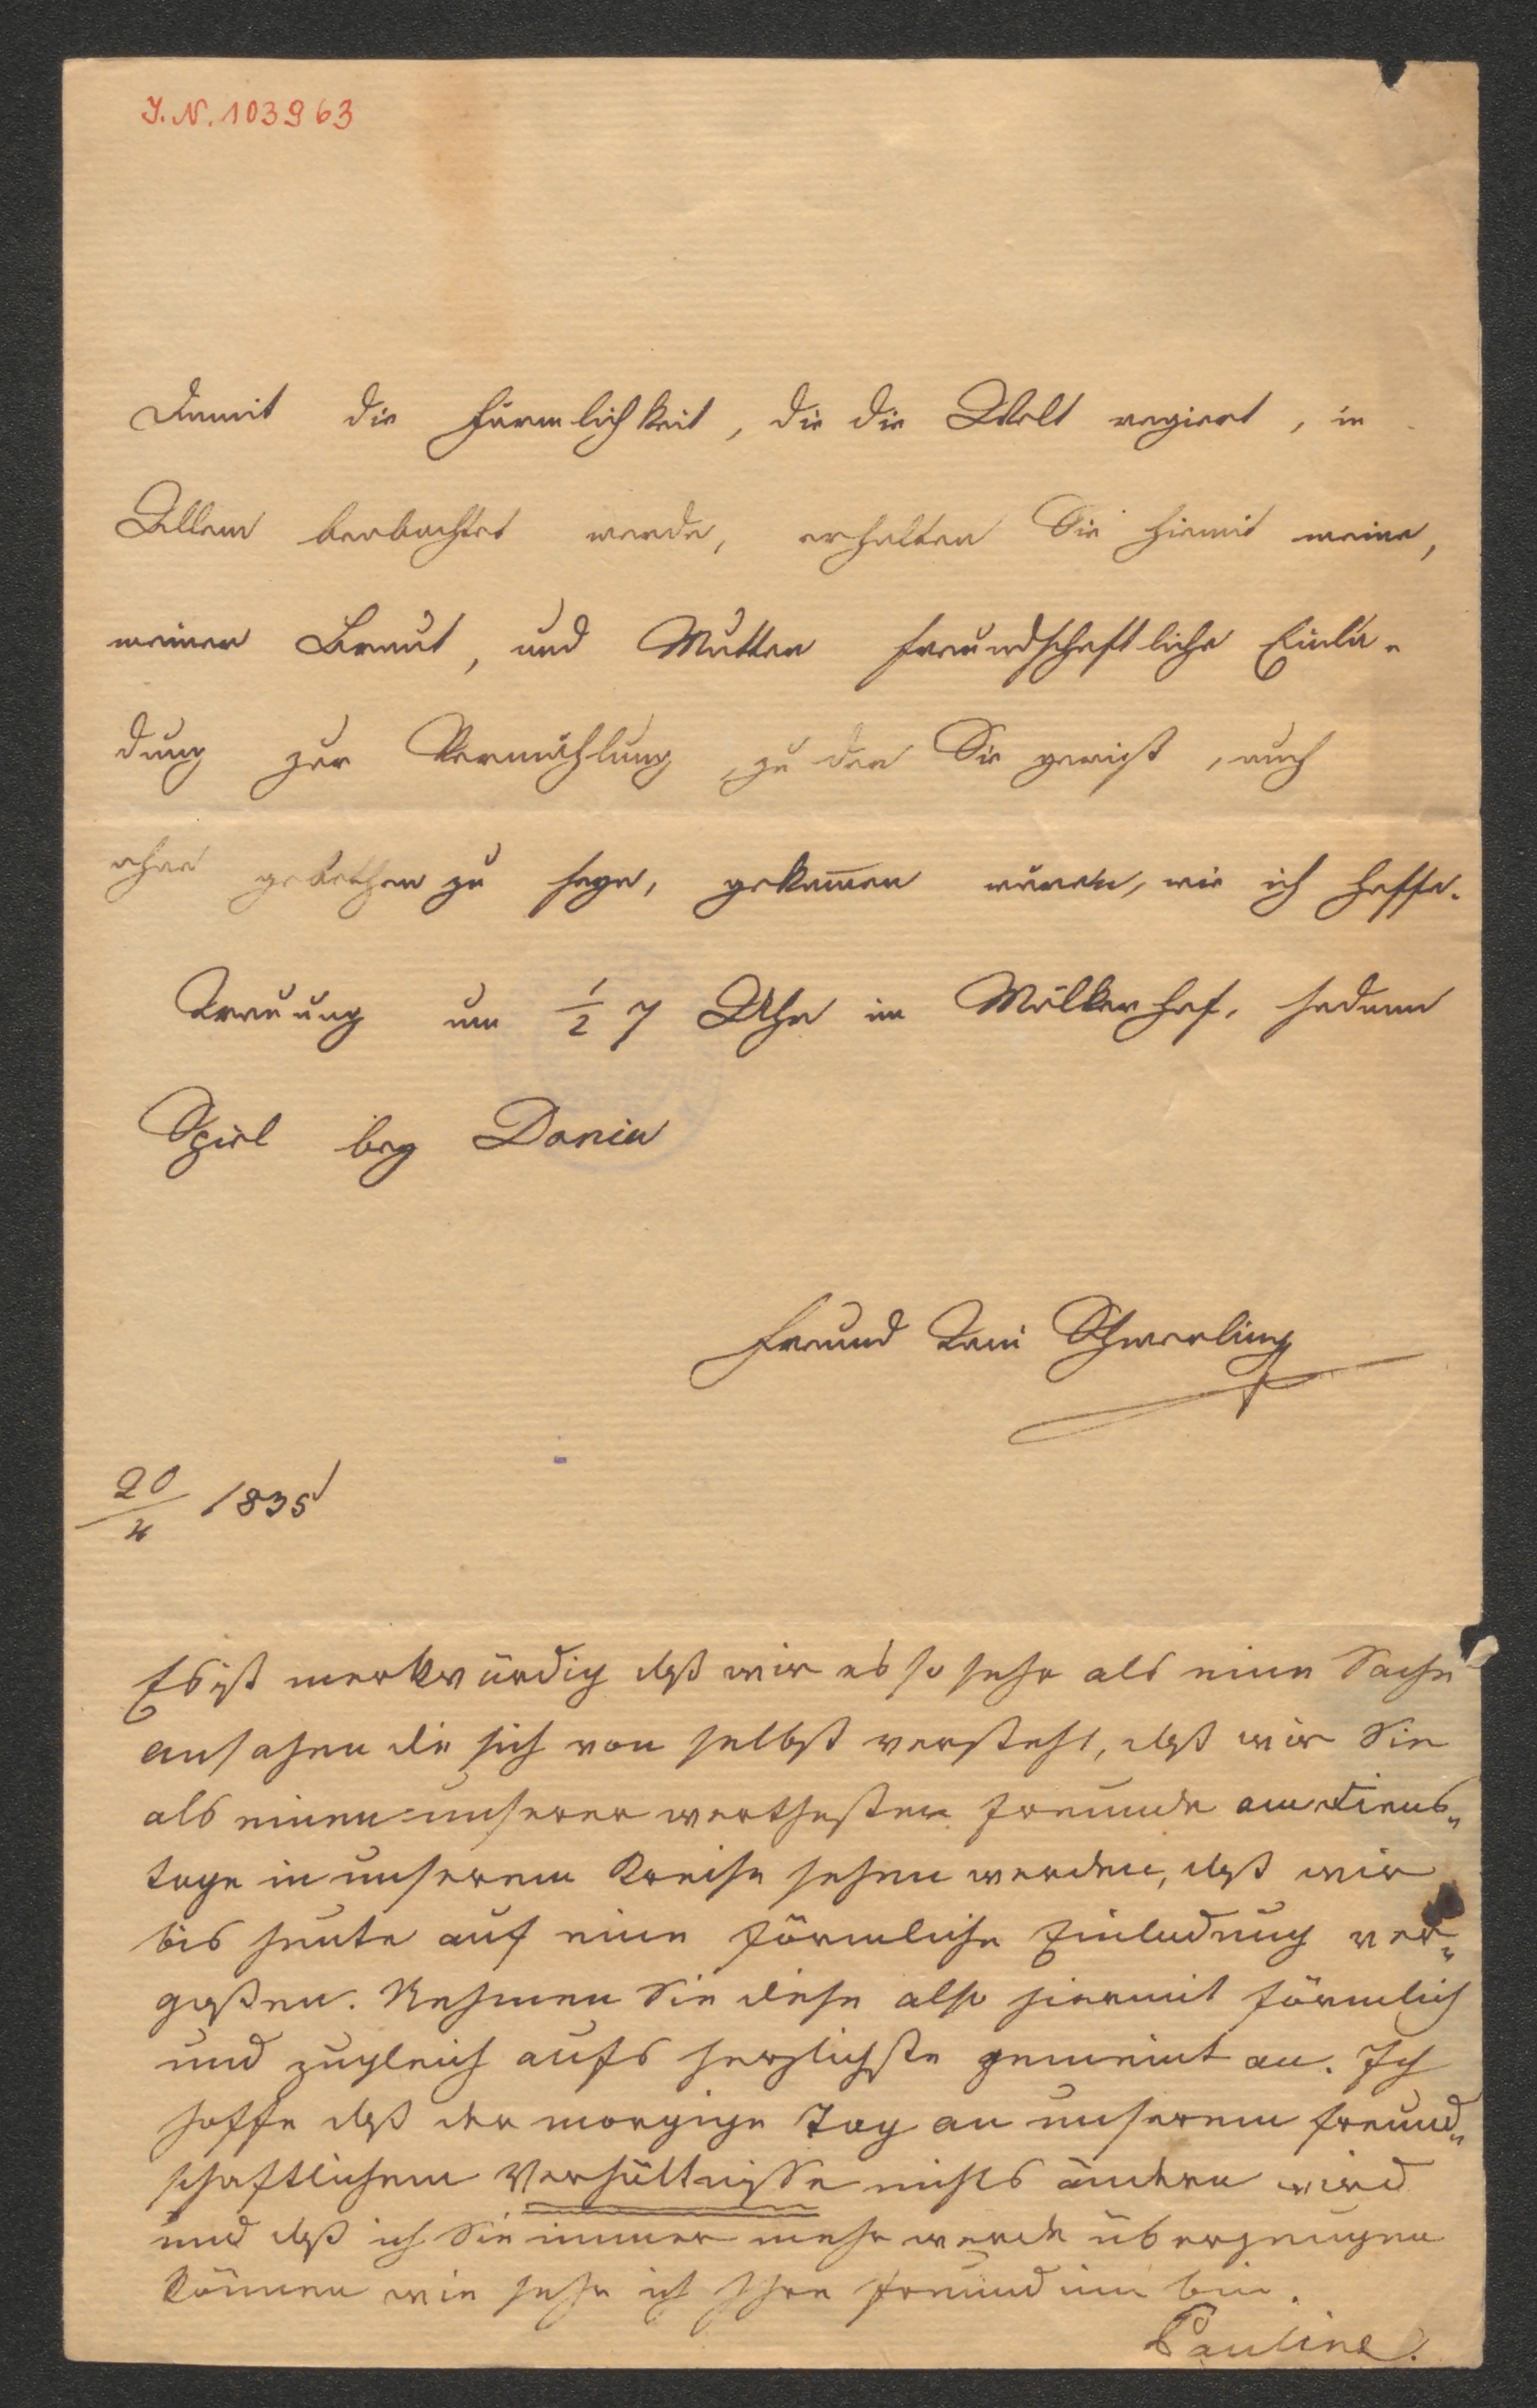 J.N. 103963
Damit die Förmlichkeit, die die Welt regiert, in
Allem beobachtet werde, erhalten Sie hiemit meine,
meiner Braut, und Mutter freundschaftliche Einla-
dung zur Vermählung, zu der Sie gewiß, auch
ohne gebethen zu seyn, gekom̄en wären, wie ich hoffe.
Trauung um ½ 7 Uhr im Mölkerhof, sodann
Spiel bey
Freund Toni Schmerling
20/4 1835
Es ist merkwürdig daß wir es so sehr als eine Sache
ansahen die sich von selbst versteht, daß wir Sie
als einen unserer werthesten Freunde am Diens-
tage in unserem Kreise sehen werden, daß wir
bis heute auf eine förmliche Einladung ver-
gaßen. Nehmen Sie diese also hiermit förmlich
und zugleich aufs herzlichste gemeint an. Ich
hoffe daß der morgige Tag an unserem freund-
schaftlichem Verhältnisse nichts ändern wird
und daß ich Sie immer mehr werde überzeugen
können wie sehr ich Ihre Freundinn bin.
Pauline.